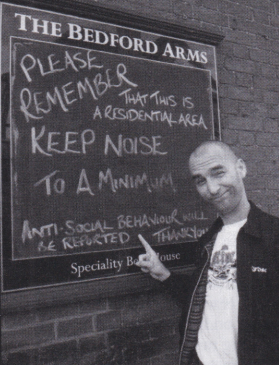 THE BEDFORD ARMS
PLEASE
REMEMBER
THAT THIS IS
A RESIDENTIAL AREA
KEEP NOISE
TO A MINIMUM
ANTI-SOCIAL BEHAVIOUR WILL
BE REPORTED THANKYOU
Speciality House